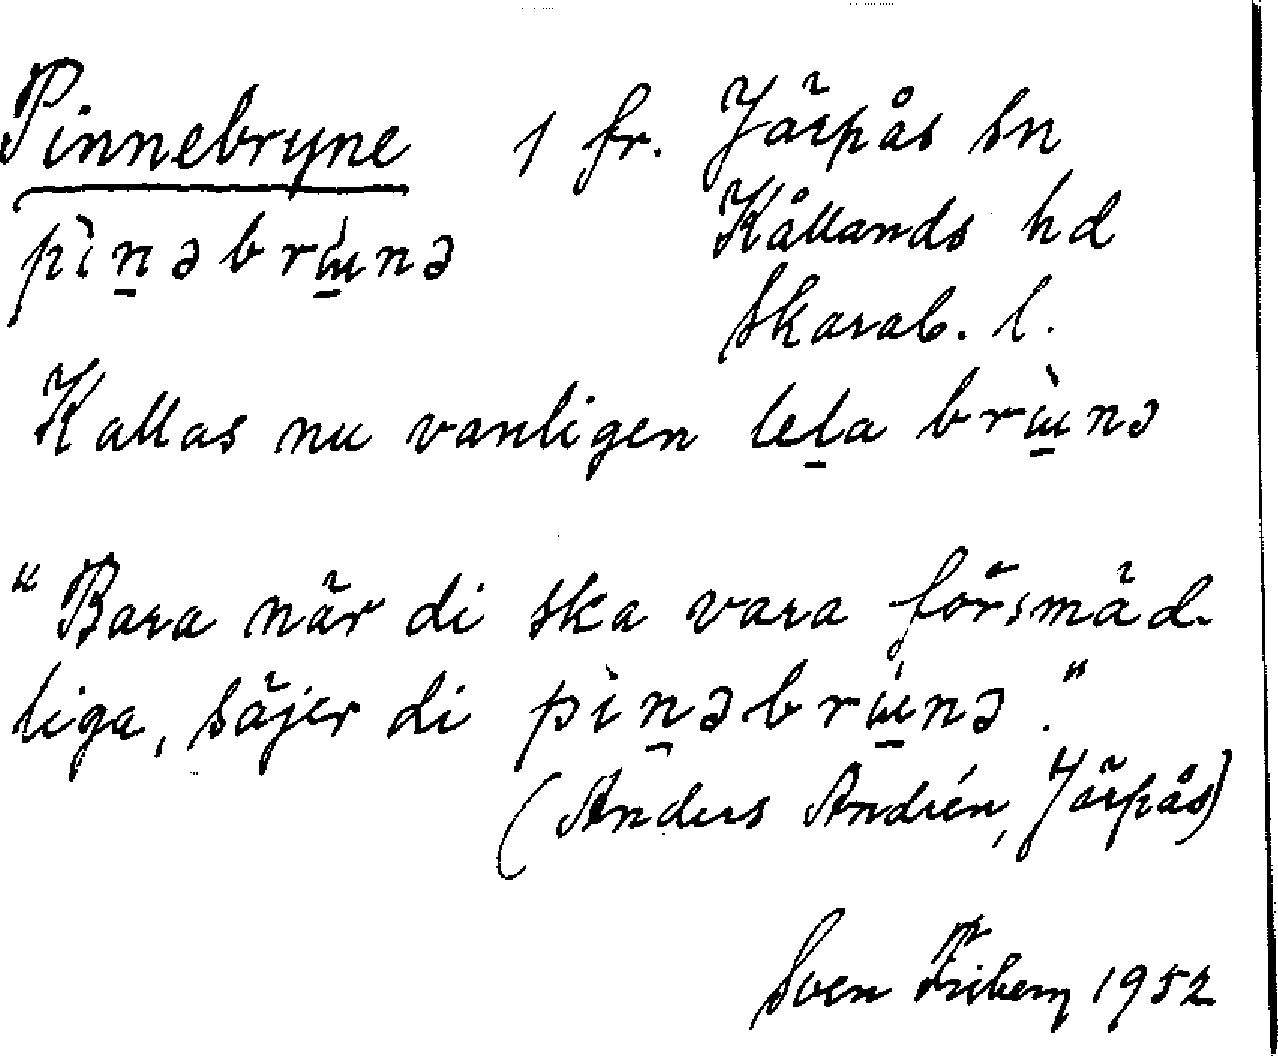 Pinnebryne 1 fr. Järpås sn
pìn̲əbrɯ̲́nə Kållands hd
Skarab. l.
Kallas nu vanligen lel̲a brɯ̲̀nə
"Bara när di ska vara försmäd-
liga, säjer di pìn̲əbrɯ̲́nə."
(Anders Andrén, Järpås)
Sven Friberg 1952